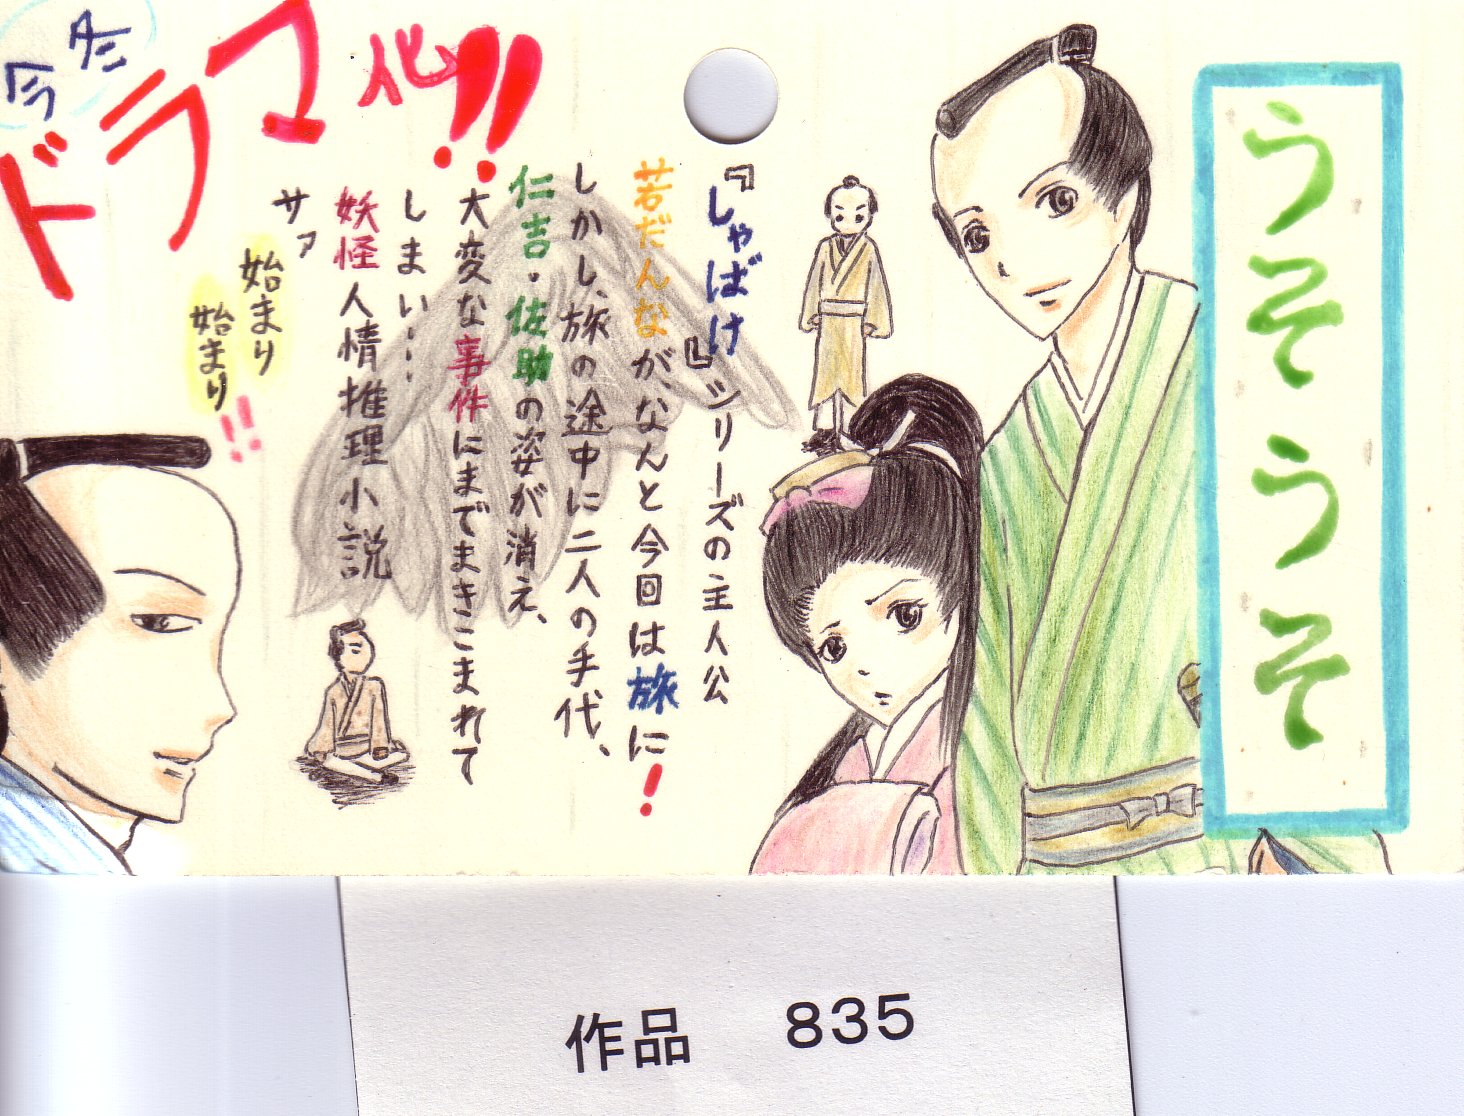 うそうそ
『しゃばけ』シリーズの主人公
若だんなが、なんと今回は旅に!
しかし、旅の途中に二人の手代、
仁吉・佐助の姿が消え、
大変な事件にまでまきこまれて
しまい…
妖怪人情推理小説
サァ
始まり
始まり!!
今冬
ドラマ化!!
作品 835